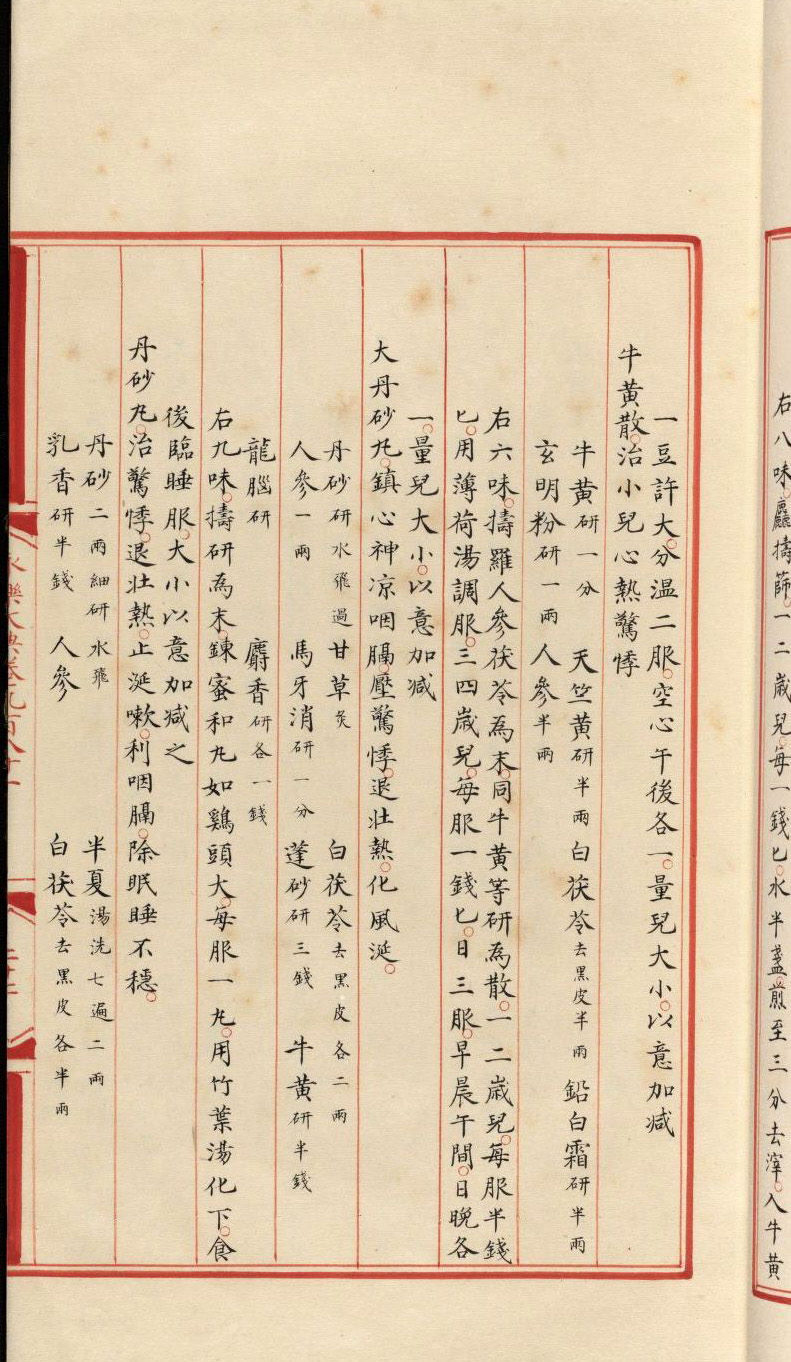 右八味。麤擣篩。一二歲兒。每一錢匕。水半盞。煎至三分去滓。入牛黃
一豆許大。分溫二服。空心午後各一。量兒大小。以意加减
牛黃散。治小兒心熱驚悸
牛黃研一分 天竺黃研半兩 白茯苓去黑皮半兩 鉛白霜研半兩
玄明粉研一兩 人參半兩
右六味。擣羅人參茯苓為末。同牛黃等研為散。一二歲兒。每服半錢
匕。用薄荷湯調服。三四歲兒。每服一錢匕。日三服。早晨午間。日晚各
一。量兒大小。以意加减
大丹砂丸。鎮心神凉咽膈。壓驚悸。退壯熱。化風涎。
丹砂研水飛過 甘草炙 白茯苓去黑皮各二兩
人參一兩 馬牙消研一分 蓬砂研三錢 牛黃研半錢
龍腦研 麝香研各一錢
右九味。擣研為末。鍊蜜和丸如鷄頭大。每服一丸。用竹葉湯化下。食
後臨睡服。大小以意加减之
丹砂丸。治驚悸。退壯熱。止涎嗽。利咽膈。除眠睡不穩。
丹砂二兩細研水飛 半夏湯洗七遍二兩
乳香研半錢 人參 白茯苓去黑皮各半兩